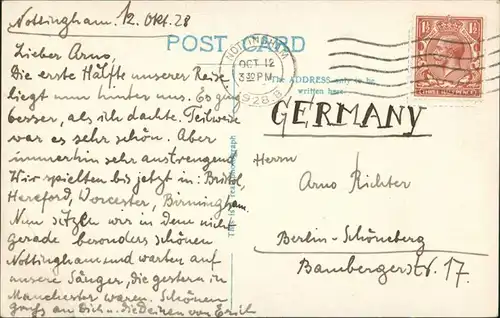 Nottingham, 12. Okt. 28
POST CARD
NOTTINGHAM
OCT 12
3 30 PM
1928
The ADDRESS only to be
written here
Lieber Arno,
Die erste Hälfte unserer Reise
liegt nun hinter uns. Es ging
besser, als ich dachte. Teilweise
war es sehr schön. Aber
immerhin sehr anstrengend.
Wir spielten bis jetzt in: Bristol,
Hereford, Worcester, Birmingham.
Nun sitzen wir in dem nicht
gerade besonders schönen
Nottingham und warten auf
unsere Sänger, die gestern in
Manchester waren. Schönen
Gruß an Dich u. die Deinen von Erich
This is a Real Photograph
GERMANY
Herrn
Arno Richter
Berlin-Schöneberg
Bambergerstr. 17.